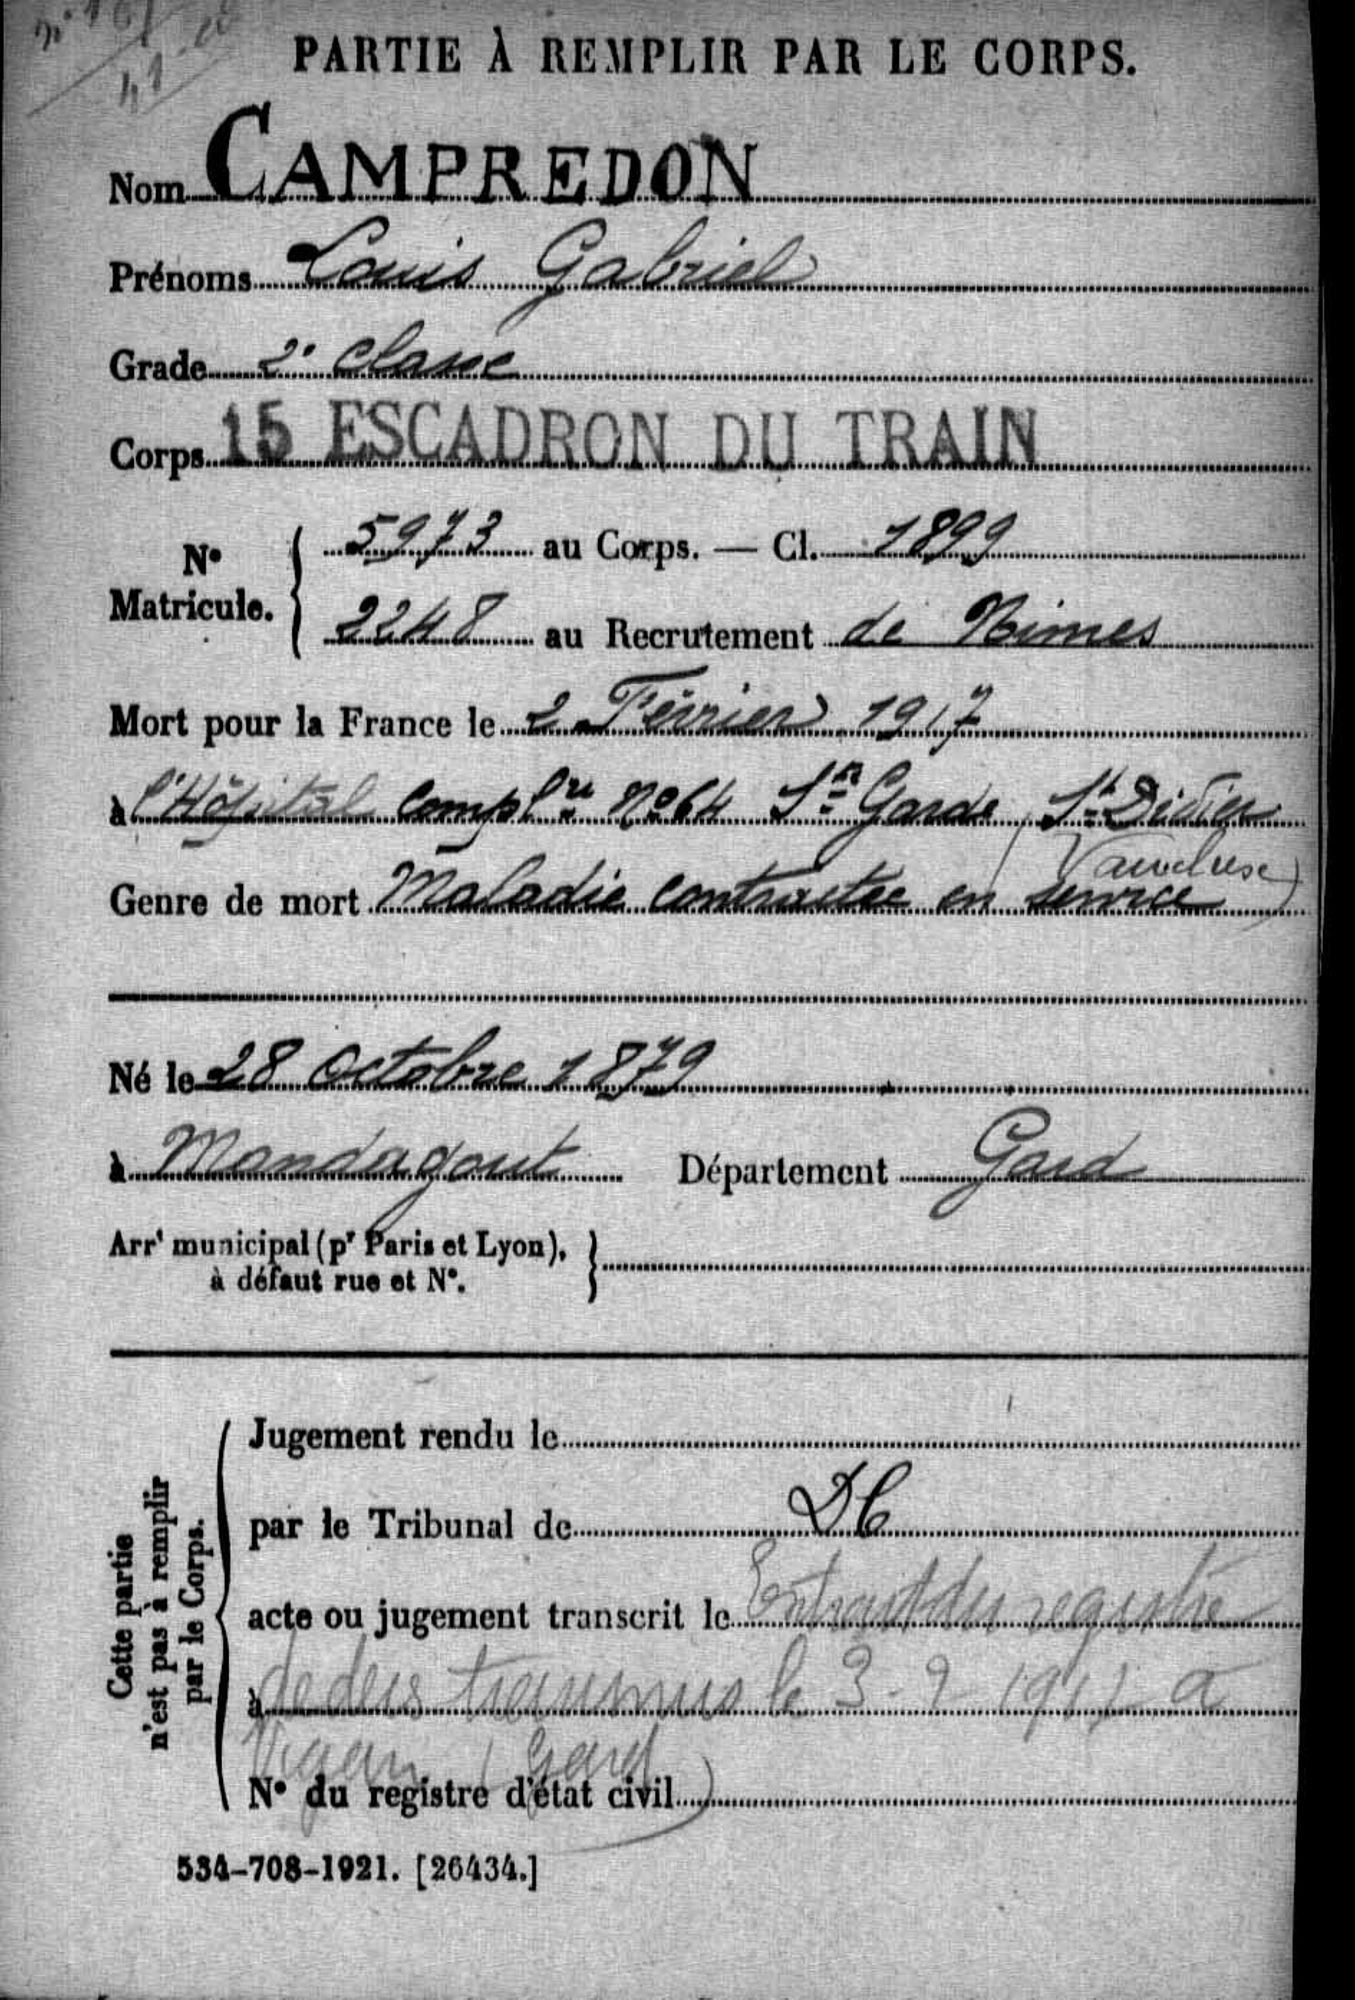 PARTIE À REMPLIR PAR LE CORPS.
Nom CAMPREDON
Prénoms Louis Gabriel
Grade 2e classe
Corps 15 ESCADRON DU TRAIN
N° Matricule. { 5973 au Corps. — Cl. 1899
2248 au Recrutement de Nimes
Mort pour la France le 2 Février 1917
à l'Hôpital Complre No 64 Ste Garde, St Didier
(Vaucluse)
Genre de mort Maladie contractée en service
Né le 28 Octobre 1879
à Mandagout Département Gard
Arrt municipal (pr Paris et Lyon), à défaut rue et N°. }
Cette partie n'est pas à remplir par le Corps.
Jugement rendu le
par le Tribunal de DC
acte ou jugement transcrit le Extrait du registre
à de décès transmis le 3-2 a
Vigan (Gard)
N° du registre d'état civil
534-708-1921. [26434.]